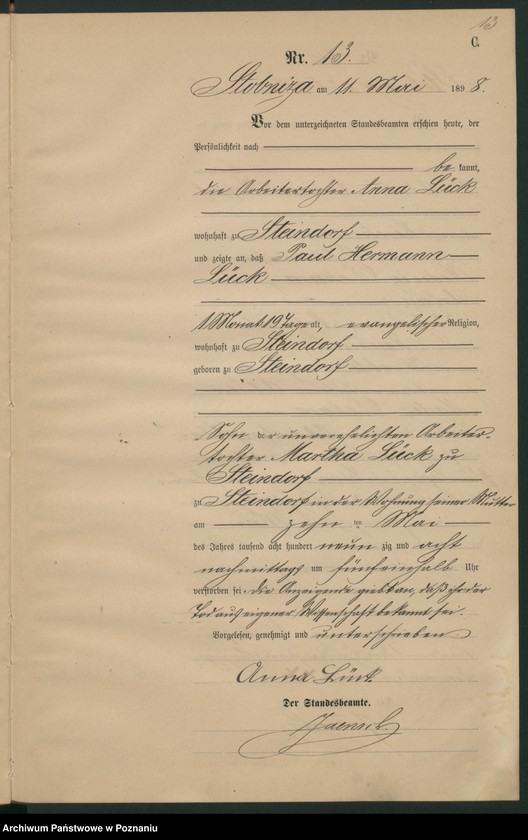 13
C.
Nr. 13.
Stobniza am 11. Mai 1898.
Vor dem unterzeichneten Standesbeamten erschien heute, der
Persönlichkeit nach
be kannt,
die Arbeitertochter Anna Lück
wohnhaft zu Steindorf
und zeigte an, daß Paul Hermann
Lück
1 Monat 19 Tage alt, evangelischer Religion,
wohnhaft zu Steindorf
geboren zu Steindorf
Sohn der unverehelichten Arbeiter-
tochter Martha Lück zu
Steindorf
zu Steindorf in der Wohnung seiner Mutter
am zehn ten Mai
des Jahres tausend acht hundert neun zig und acht
nachmittags um fünfeinhalb Uhr
verstorben sei. Die Anzeigende giebt an, daß ihr der
Tod aus eigener Wissenschaft bekannt sei.
Vorgelesen, genehmigt und unterschrieben
Anna Lück
Der Standesbeamte.
Archiwum Państwowe w Poznaniu